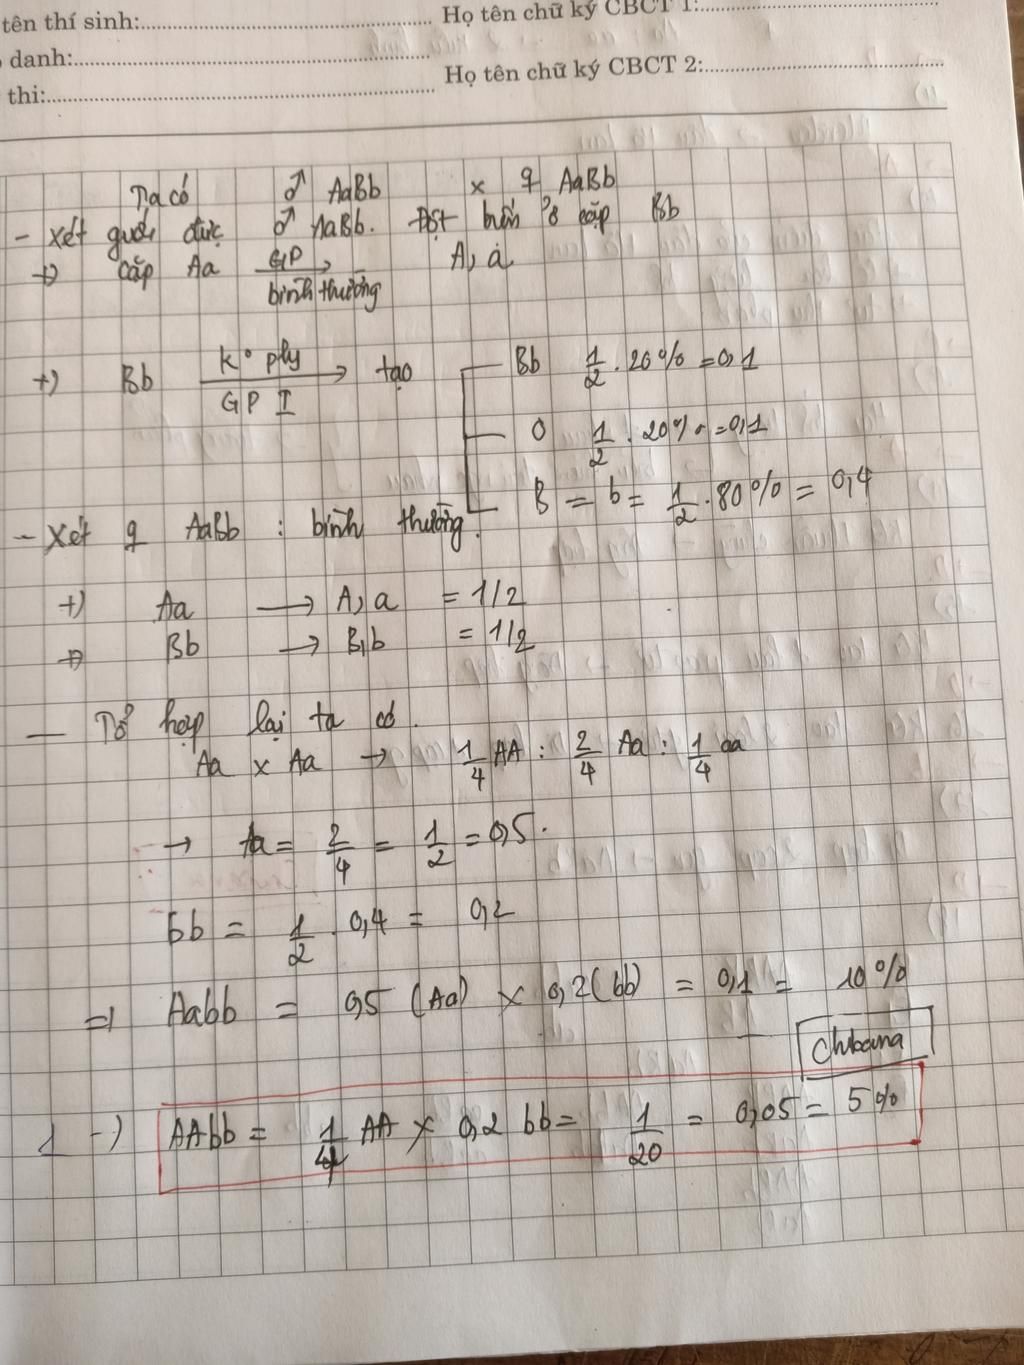 tên thí sinh:........ Họ tên chữ ký CBCT 1:........
danh:........
Họ tên chữ ký CBCT 2:........
thi:........
Ta có ♂ AaBb x ♀ AaBb
- Xét giới đực ♂ AaBb. Đột biến ở cặp Bb
+) Cặp Aa GP bình thường → A, a
+) Bb K° ply GP I → tạo
Bb 1/2 . 20% = 0,1
O 1/2 . 20% = 0,1
B = b = 1/2 . 80% = 0,4
- Xét ♀ AaBb : bình thường.
+) Aa → A, a = 1/2
+) Bb → B, b = 1/2
- Tổ hợp lại ta có.
Aa x Aa → 1/4 AA : 2/4 Aa : 1/4 aa
→ Aa = 2/4 = 1/2 = 0,5.
bb = 1/2 . 0,4 = 0,2
=) Aabb = 0,5 (Aa) x 0,2 (bb) = 0,1 = 10%
Chibana
1 -) AAbb = 1/4 AA x 0,2 bb = 1/20 = 0,05 = 5%